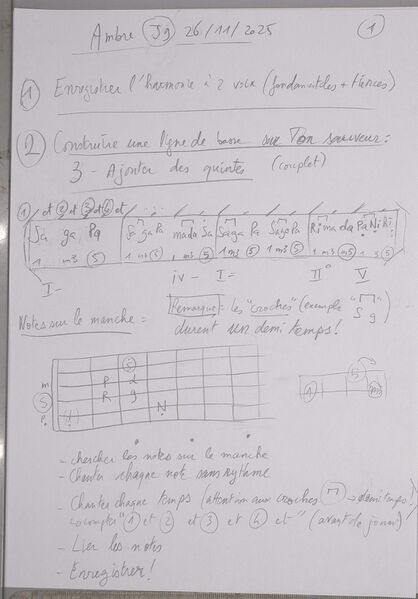 Ambre Jg 26/11/2025 1
1 Enregistrer l'harmonie à 2 voix (fondamentales + tierces)
2 Construire une ligne de basse sur Ton sauveur :
3 - Ajouter des quintes (couplet)
1 et 2 et 3 et 4 et
Sa ga Pa Sa ga Pa mada Sa Saga Pa Saga Pa Rimada Pa Ni Ri
1 m3 5 1 m3 5 1 m3 5 1 m3 5 1 m3 1 3 5
I- iv- I- II° V
Notes sur le manche = Remarque : les "croches" (exemple S g
durent un demi temps!
5
m P d
5 R g
N
1 5 m3
- chercher les notes sur le manche
- Chanter chaque note sans rythme
- Chanter chaque temps (attention aux croches → demi temps!
compter "1 et 2 et 3 et 4 et" (avant de jouer)
- Lier les notes
- Enregistrer!